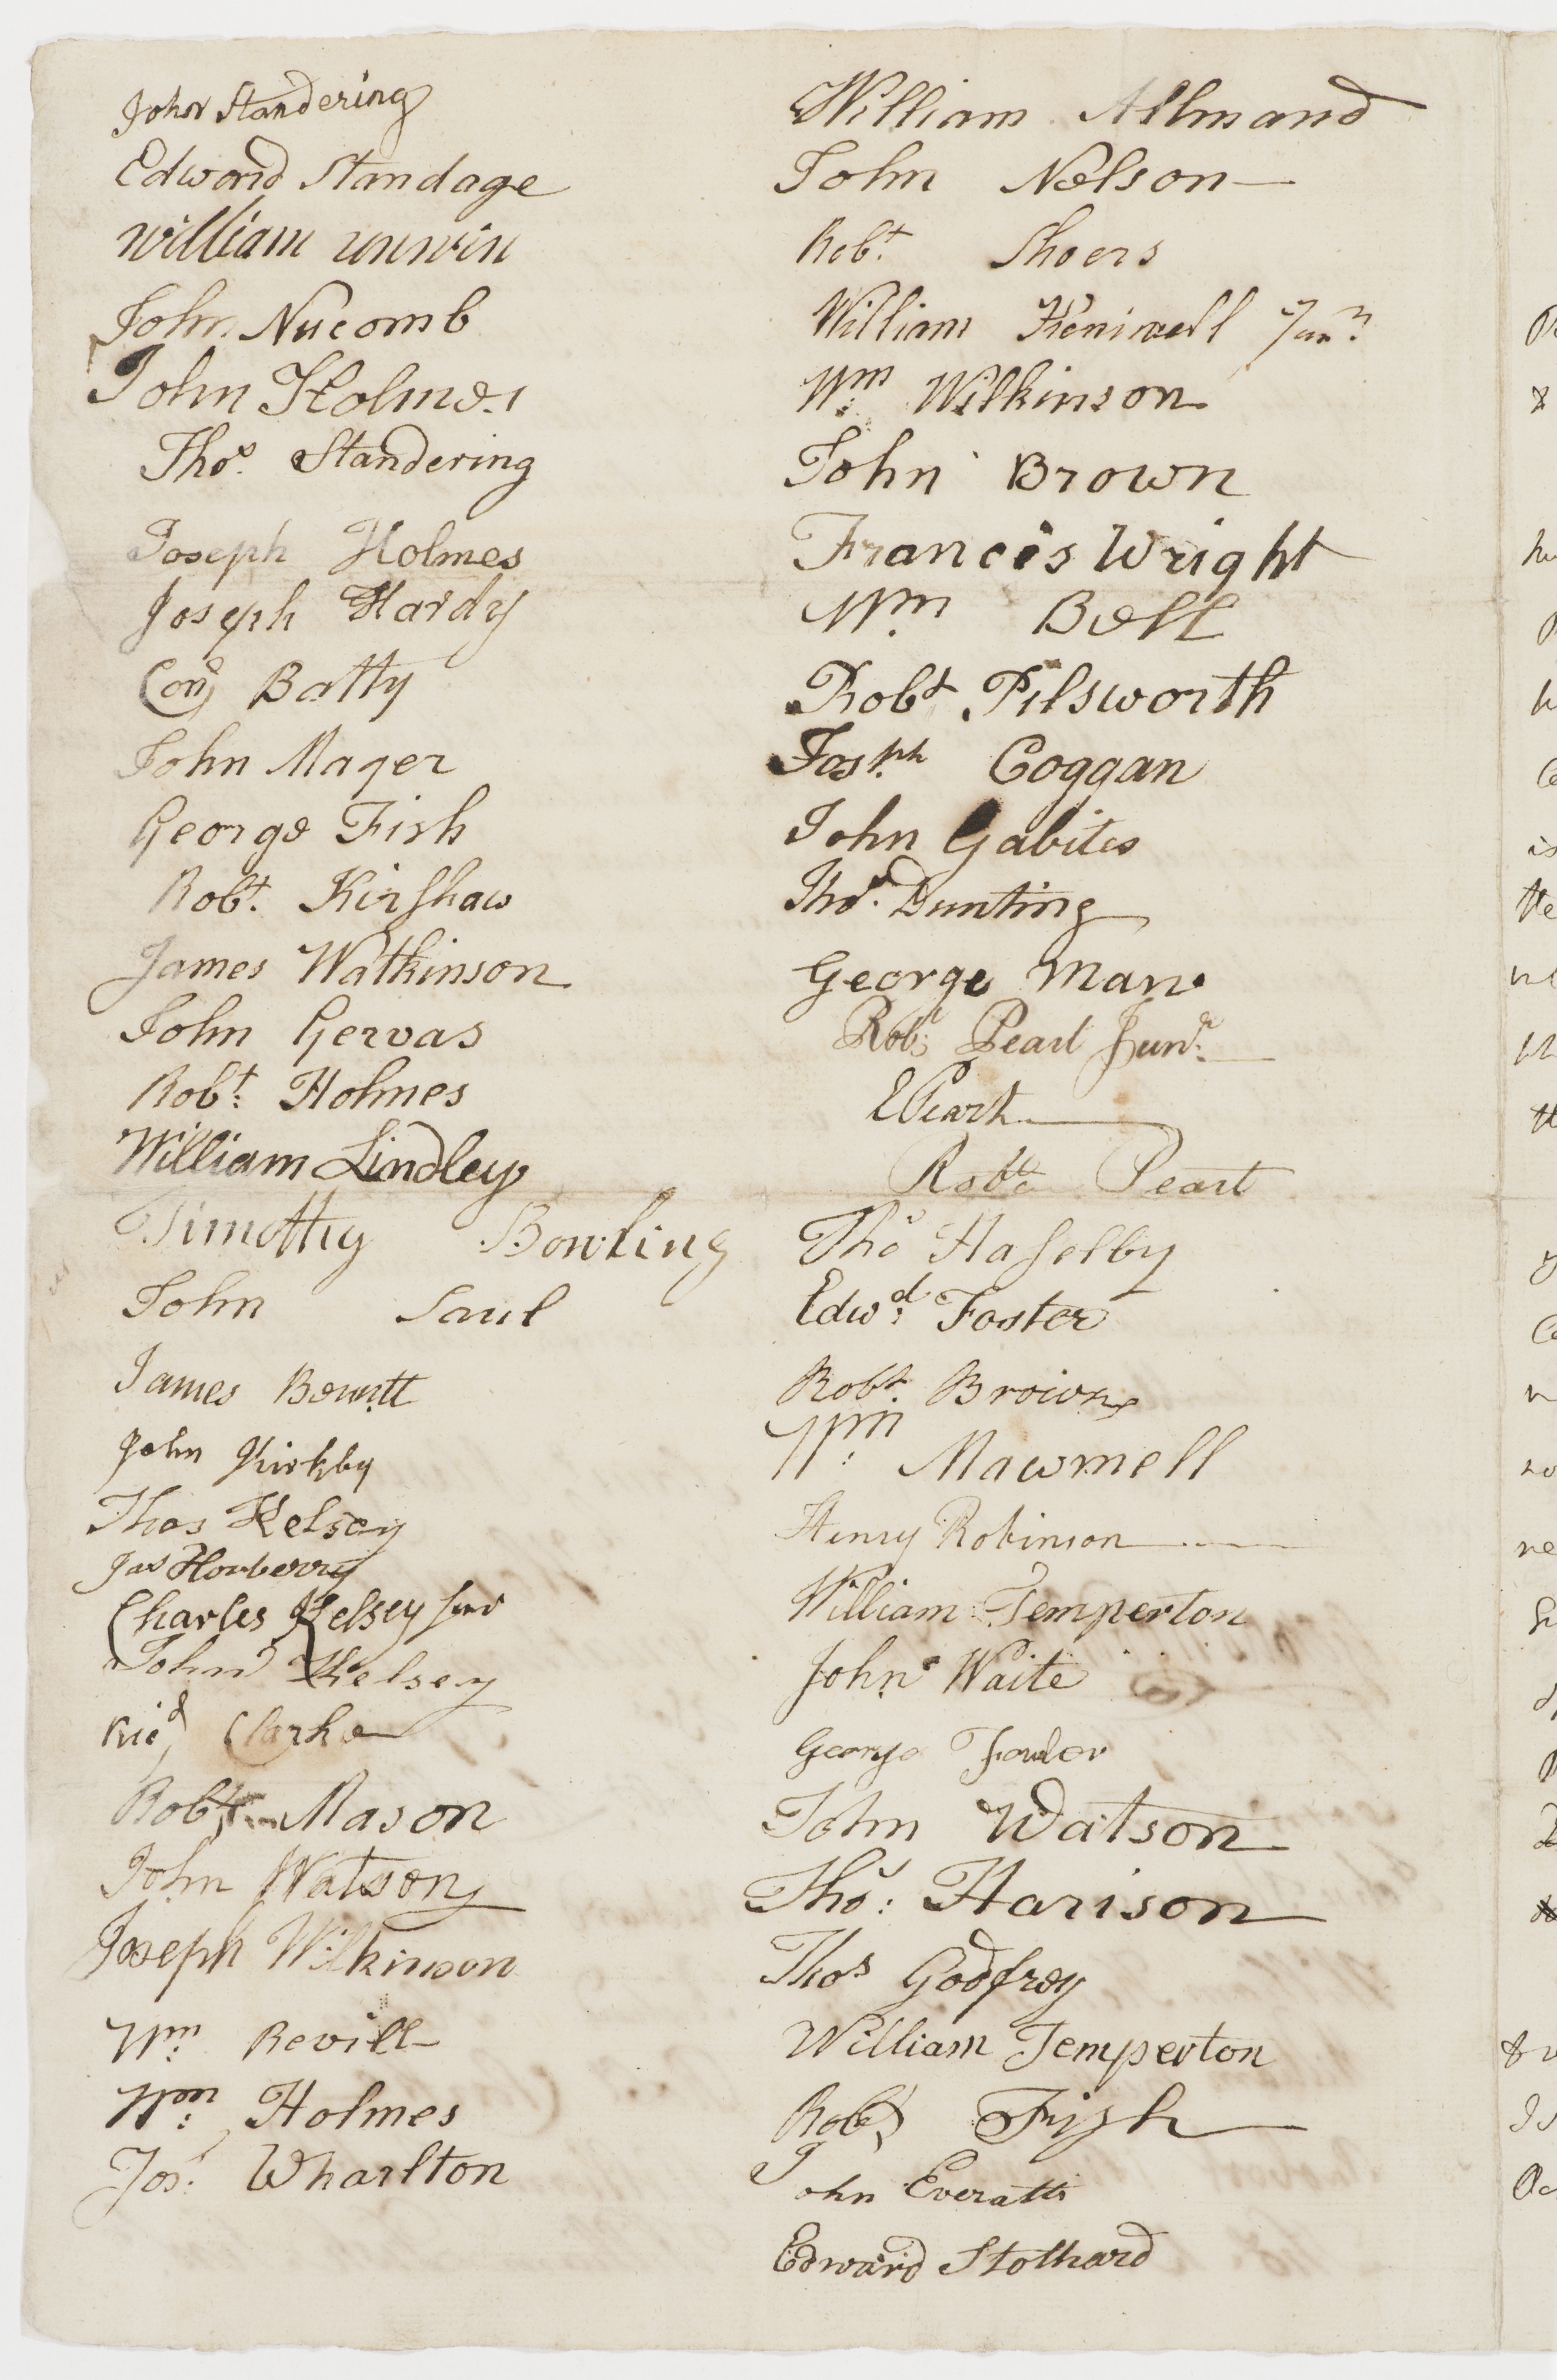 John Standering
Edward Standage
William unwin
John Nucomb
John Holmes
Thos. Standering
Joseph Holmes
Joseph Hardy
Batty
John Mager
George Fish
Robt. Kirshaw
James Watkinson
John Gervas
Robt: Holmes
William Lindley
Timothy Bowling
John Saul
James Bewitt
John Kirkby
Thos Kelsey
Jas Horberry
Charles Kelsey Junr
John Kelsey
Ricd Clarke
Robt Mason
John Watson
Joseph Wilkinson
Wm: Revill
Wm: Holmes
Jos: Wharlton
William Allmand
John Nelson
Robt. Shoers
William Keniwell Junr
Wm: Wilkinson
John Brown
Francis Wright
Wm Bell
Robt Pilsworth
Josph Coggan
John Gabites
Thos. Bunting
George Man
Robt Peart Junr
E Peart
Robt Peart
Thos Haselby
Edwd: Foster
Robt. Brown
Wm: Mawmell
Henry Robinson
William Temperton
John Waite
George Fowler
John Watson
Thos: Harison
Thos Godfrey
William Temperton
Robt Fish
John Everatt
Edward Stothard